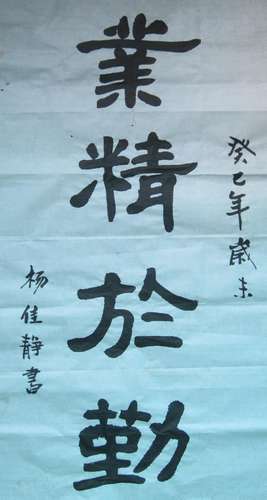 業精於勤
癸巳年歲末
杨佳靜書